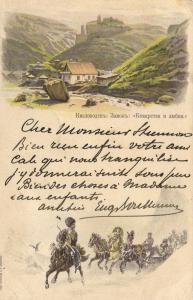 Кисловодскъ. Замокъ: «Коварства и любви.»
Cher Monsieur
Bien reçu enfin votre ami
cale qui nous tranquilise
j'y donnerai suit sous peu
Bien des choses à Madame
aux enfants.
amitiés Eug.